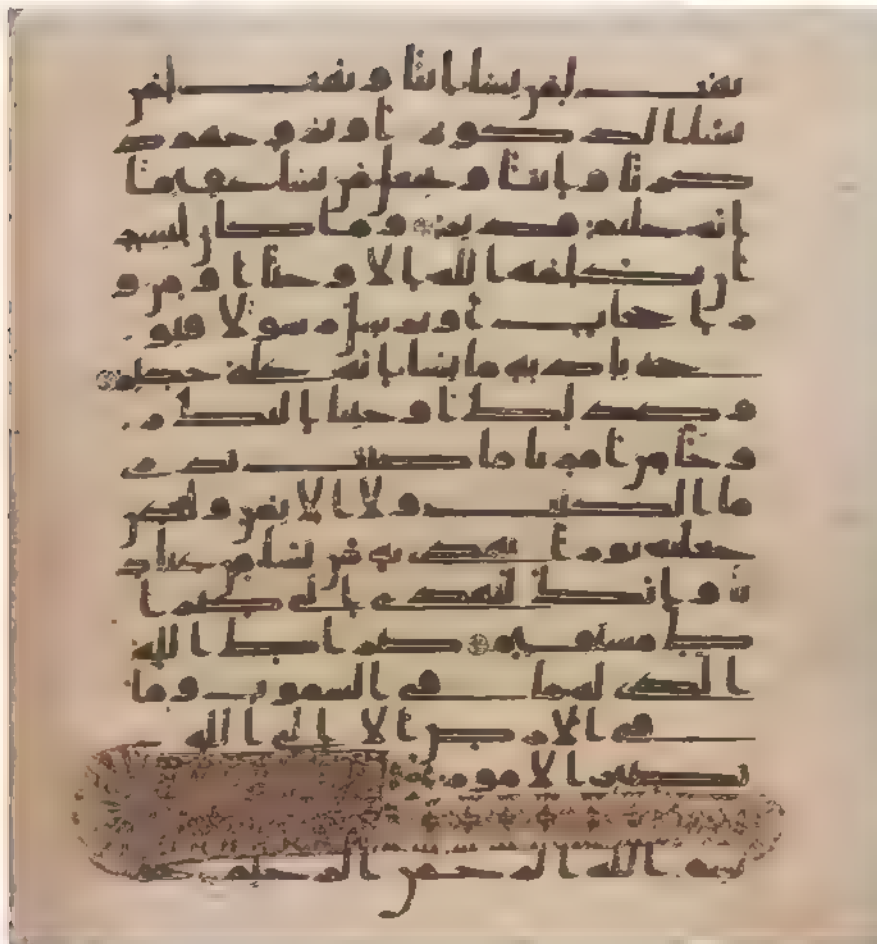 يهب لمن يشا انثا و يهب لمن
يشا الذكور او يزوجهم ذ
كرنا و انثا و يجعل من يشا عقيما
انه عليم قدير و ما كان لبشر
ان يكلمه الله الا وحيا او من و
را حجاب او يرسل رسولا فيو
حي باذنه ما يشا انه علي حكيم
و كذلك اوحينا اليك ر
وحا من امرنا ما كنت تدري
ما الكتب و لا الايمن و لكن
جعلنه نورا نهدي به من نشا من عباد
نا و انك لتهدي الى صرا
ط مستقيم صراط الله
الذي له ما في السموت و ما
في الارض الا الى الله
تصير الامور
بسم الله الرحمن الرحيم